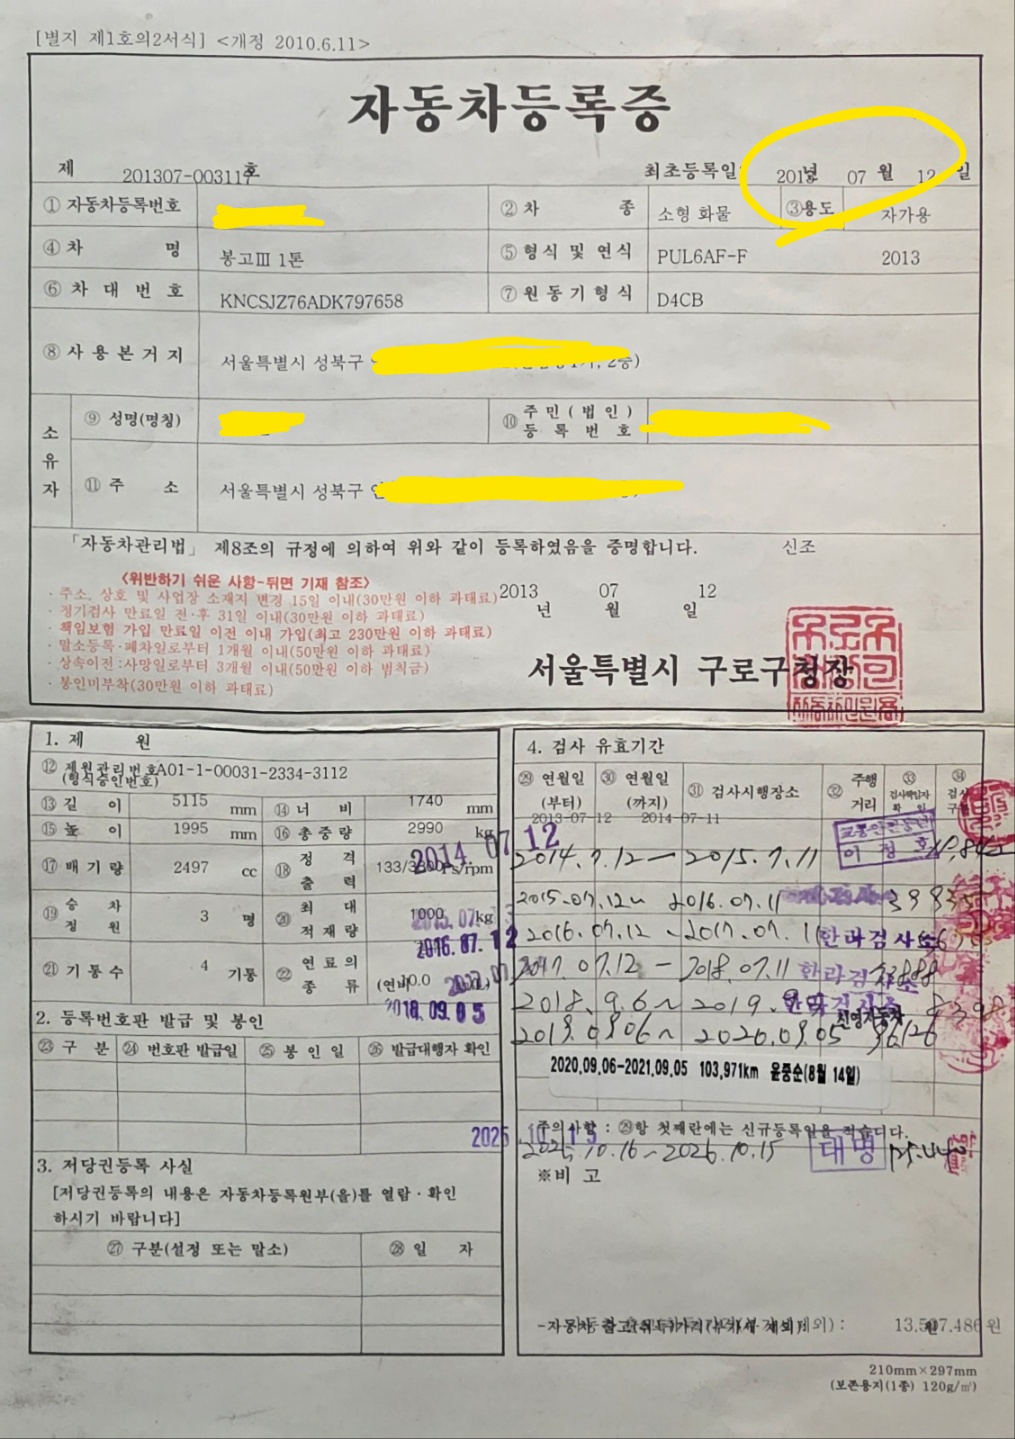 [별지 제1호의2서식] <개정 2010.6.11>
자동차등록증
제 201307-003117 호 최초등록일 2013년 07 월 12 일
① 자동차등록번호 ② 차 종 소형 화물 ③ 용도 자가용
④ 차 명 봉고Ⅲ 1톤 ⑤ 형식 및 연식 PUL6AF-F 2013
⑥ 차 대 번 호 KNCSJZ76ADK797658 ⑦ 원동기형식 D4CB
⑧ 사용본거지 서울특별시 성북구 2층)
소유자 ⑨ 성명(명칭) ⑩ 주민(법인)등록번호
⑪ 주 소 서울특별시 성북구
「자동차관리법」 제8조의 규정에 의하여 위와 같이 등록하였음을 증명합니다. 신조
<위반하기 쉬운 사항-뒤면 기재 참조>
· 주소, 상호 및 사업장 소재지 변경 15일 이내(30만원 이하 과태료)
· 정기검사 만료일 전·후 31일 이내(30만원 이하 과태료)
· 책임보험 가입 만료일 이전 이내 가입(최고 230만원 이하 과태료)
· 말소등록·폐차일로부터 1개월 이내(50만원 이하 과태료)
· 상속이전:사망일로부터 3개월 이내(50만원 이하 범칙금)
· 봉인미부착(30만원 이하 과태료)
2013 년 07 월 12 일
서울특별시 구로구청장
1. 제 원
⑫ 제원관리번호 A01-1-00031-2334-3112
(형식승인번호)
⑬ 길 이 5115 mm ⑭ 너 비 1740 mm
⑮ 높 이 1995 mm ⑯ 총중량 2990 kg
2014 07 12
⑰ 배기량 2497 cc ⑱ 정격출력 133/3800Ps/rpm
⑲ 승차정원 3 명 ⑳ 최대적재량 1000 kg
2016.07.12
㉑ 기통수 4 기통 ㉒ 연료의 종류 (연비 0.0
2018.09.05
2. 등록번호판 발급 및 봉인
㉓ 구 분 ㉔ 번호판 발급일 ㉕ 봉 인 일 ㉖ 발급대행자 확인
2025.10.15
3. 저당권등록 사실
[저당권등록의 내용은 자동차등록원부(을)를 열람·확인
하시기 바랍니다]
㉗ 구분(설정 또는 말소) ㉘ 일 자
4. 검사 유효기간
㉙ 연월일 (부터) ㉚ 연월일 (까지) ㉛ 검사시행장소 ㉜ 주행거리 ㉝ 검사책임자 확인 ㉞ 검사구분
2013-07-12 2014-07-11
2014.7.12 - 2015.7.11 이정호
2015.07.12~ 2016.07.11
2016.07.12 ~ 2017.07.11 한라검사소
2017.07.12 - 2018.07.11 한라검사소
2018.9.6 ~ 2019.
2019.09.06 ~ 2020.09.05 96126
2020.09.06-2021.09.05 103,971km 윤중순(8월 14일)
주의사항 : ㉙항 첫째란에는 신규등록일을 적습니다.
2025.10.16 ~ 2026.10.15 대명
※비 고
210mm×297mm
(보존용지(1종) 120g/㎡)